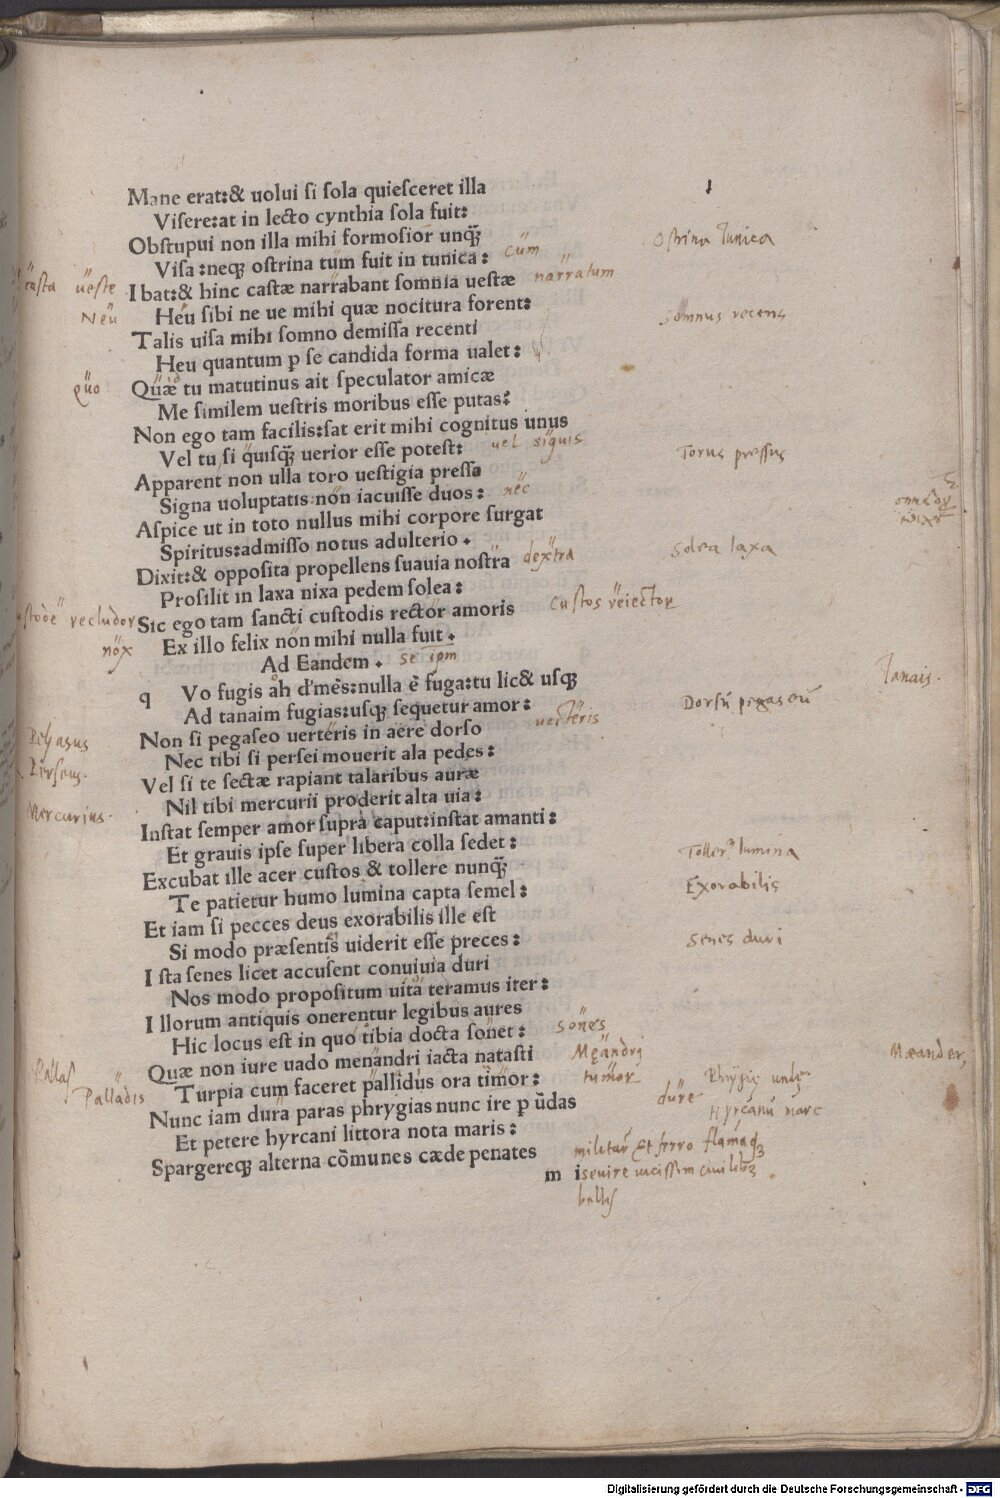 Mane erat:& uolui si sola quiesceret illa
Visere:at in lecto cynthia sola fuit:
Obstupui non illa mihi formosior unq̃
Visa :neqȝ ostrina tum fuit in tunica : cum
Ostrina Tunica
ueste Ibat:& hinc castæ narrabant somnia uestæ narratum
Neu Heu sibi ne ue mihi quæ nocitura forent:
Somnus recens
Talis uisa mihi somno demissa recenti
Heu quantum p se candida forma ualet:
quo Quæ tu matutinus ait speculator amicæ
Me similem uestris moribus esse putas:
Non ego tam facilis:sat erit mihi cognitus unus
Vel tu si quisq̃ uerior esse potest: uel siquis
Torus pressus
Apparent non ulla toro uestigia presso
Signa uoluptatis non iacuisse duos : nec
Aspice ut in toto nullus mihi corpore surgat
Spiritus:admisso notus adulterio .
Solea laxa
Dixit:& opposita propellens suauia nostra dextra
Prosilit in laxa nixa pedem solea :
Custos reiector
recludor Sic ego tam sancti custodis rector amoris
nox Ex illo felix non mihi nulla fuit .
Ad Eandem . se ipm
Tanais.
q Vo fugis ah d'mẽs:nulla ẽ fuga:tu lic& usqȝ
Ad tanaim fugias:usqȝ sequetur amor :
Dorsũ pegaseũ
Non si pegaseo uerteris in aere dorso uecteris
Pegasus
Nec tibi si persei mouerit ala pedes :
Perseus.
Vel si te sectæ rapiant talaribus auræ
Nil tibi mercurii proderit alta uia :
Mercurius.
Instat semper amor supra caput:instat amanti :
Et grauis ipse super libera colla sedet :
Toller lumina
Excubat ille acer custos & tollere nunq̃
Te patietur humo lumina capta semel :
Exorabilis
Et iam si pecces deus exorabilis ille est
Si modo præsentis uiderit esse preces :
Senes duri
Ista senes licet accusent conuiuia duri
Nos modo propositum uita teramus iter :
Illorum antiquis onerentur legibus aures
Hic locus est in quo tibia docta sonet : sones
Quæ non iure uado menandri iacta natasti Meandri
Mæander,
Pallas
Turpia cum faceret pallidus ora timor : tumor
Palladis
Nunc iam dura paras phrygias nunc ire p ũdas dure
Et petere hyrcani littora nota maris :
Hyrcanũ mare
Spargereqȝ alterna cõmunes cæde penates
m i
Digitalisierung gefördert durch die Deutsche Forschungsgemeinschaft - DFG